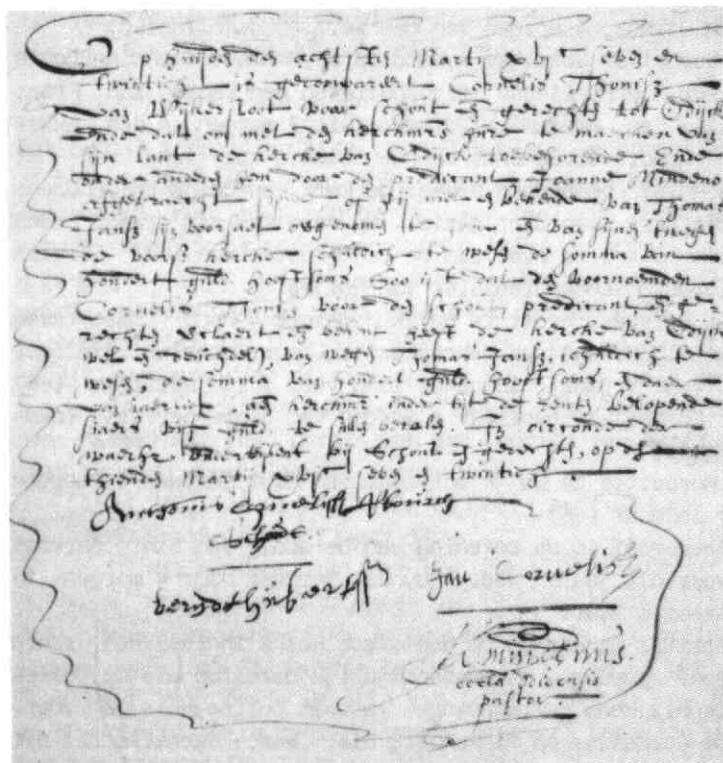 Op huijden den achtsten Martij xvjc seven en
twintich is gecompareert Cornelis Thonisz
van Wijckersloot voor schout en gerechte tot Odijck
ende dat om met den kerckmrs te maecken van
sijn lant de kercke van Odijck toebehorende Ende
door den predicant Joanne
of hij niet en bekende van Thomas
Jansz sijn voorsaet te sijn en van sijnen wegen
de voors. kercke schuldich te wesen de somma van
hondert guld. hooftsoms Soo ist dat den voornoemden
Cornelis Tonisz voor den schout, predicant, en ge
rechte verclaert en bekent heeft de kercke van Odijck
wel en deuchdel. van wegen Thomas Jansz. schuldich te
wesen, de somma van hondert guld. hooftsoms, en daer
van jaerlicx aen kerckmrs inder tijt de rente belopende
siaers vijf guld. te sullen betalen. In oirconde der
waerh. bij Schout en gerechte, op den
thienden Martij xvjc seven en twintich
Anthonis Cornelisz
Schout
Jan Cornelisz
eccles.
pastor.